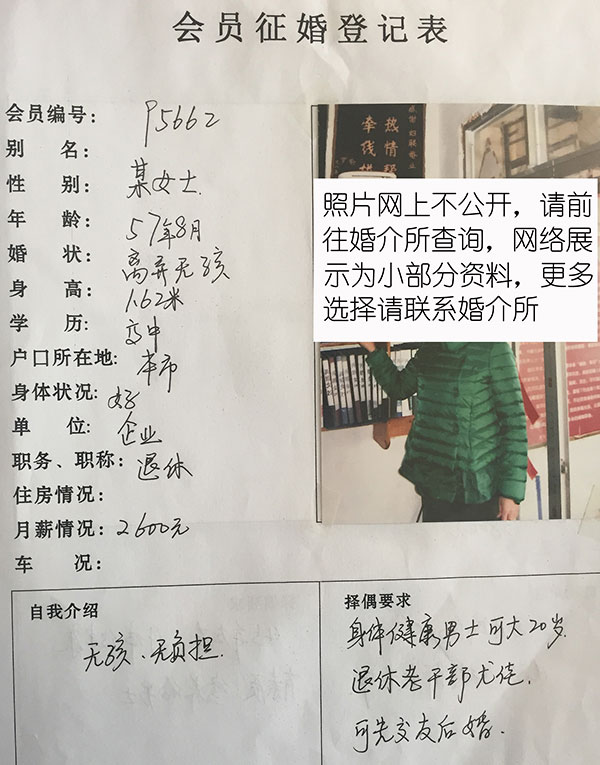 会员征婚登记表
会员编号: P5662
别 名:
性 别: 某女士.
年 龄: 57年8月
婚 状: 离异无孩
身 高: 1.62米
学 历: 高中
户口所在地: 本市
身体状况: 好
单 位: 企业
职务、职称: 退休
住房情况:
月薪情况: 2600元
车 况:
热情
牵线
照片网上不公开，请前
往婚介所查询，网络展
示为小部分资料，更多
选择请联系婚介所
自我介绍
无孩、无负担.
择偶要求
身体健康男士可大20岁.
退休老干部尤佳.
可先交友后婚.